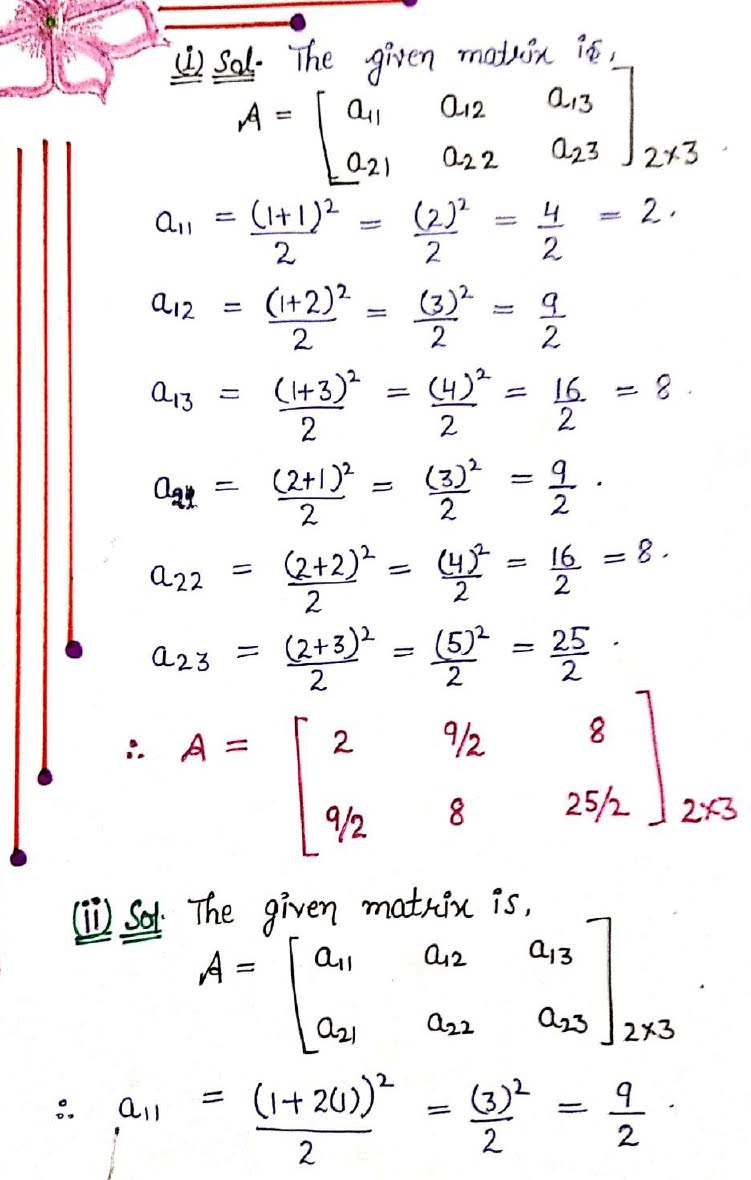 (i) Sol. The given matrix is,
A = [ a11 a12 a13
a21 a22 a23 ] 2×3 .
a11 = (1+1)²/2 = (2)²/2 = 4/2 = 2.
a12 = (1+2)²/2 = (3)²/2 = 9/2
a13 = (1+3)²/2 = (4)²/2 = 16/2 = 8.
a21 = (2+1)²/2 = (3)²/2 = 9/2 .
a22 = (2+2)²/2 = (4)²/2 = 16/2 = 8.
a23 = (2+3)²/2 = (5)²/2 = 25/2 .
∴ A = [ 2 9/2 8
9/2 8 25/2 ] 2×3
(ii) Sol. The given matrix is,
A = [ a11 a12 a13
a21 a22 a23 ] 2×3 .
∴ a11 = (1+2(1))²/2 = (3)²/2 = 9/2 .